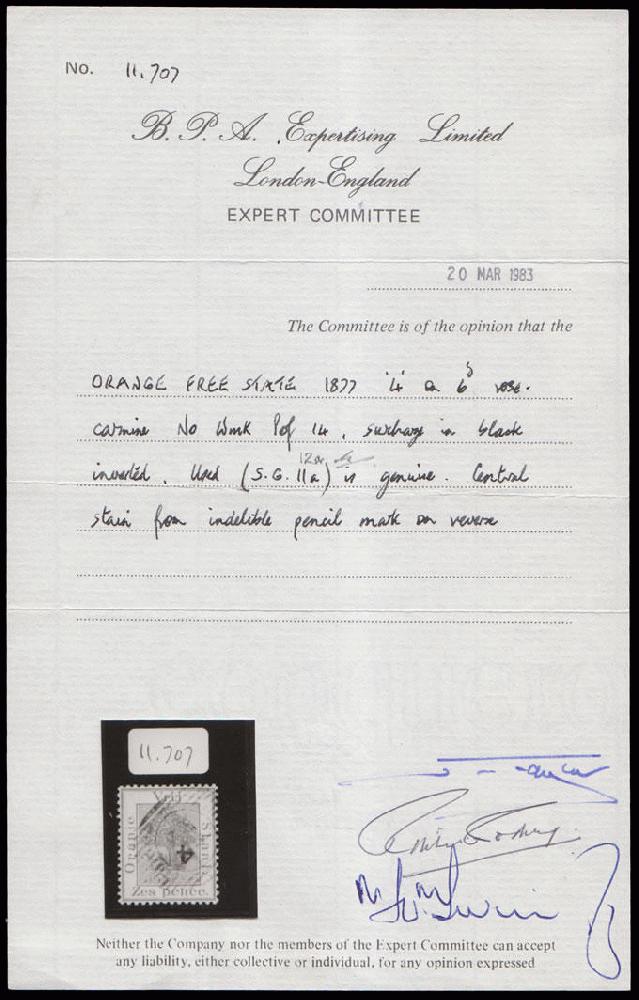 No. 11,707
B.P.A. Expertising Limited
London-England
EXPERT COMMITTEE
20 MAR 1983
The Committee is of the opinion that the
ORANGE FREE STATE 1877 '4' on 6d rose.
carmine No Wmk Perf 14, surcharge in black
12a
inverted. Used (S.G. 11a) is genuine. Central
stain from indelible pencil mark on reverse
11.707
Vrij
Oranje Staat
4
Zes pence.
Neither the Company nor the members of the Expert Committee can accept
any liability, either collective or individual, for any opinion expressed